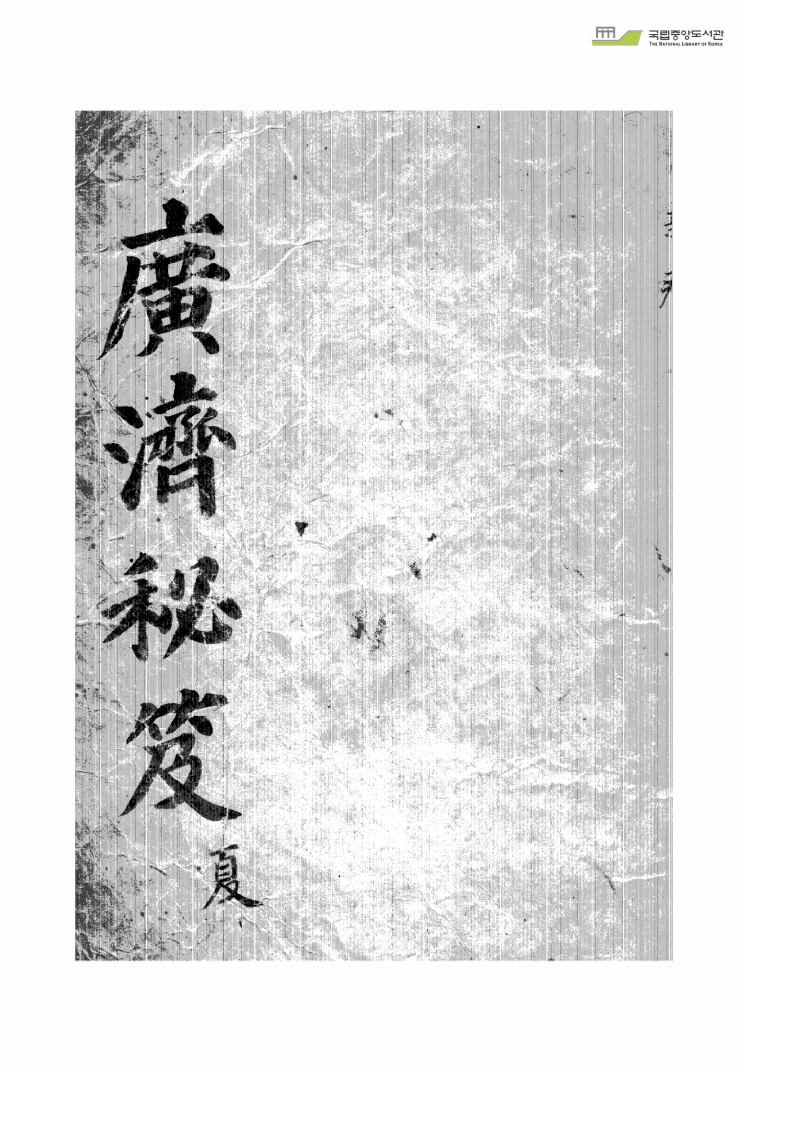 국립중앙도서관
THE NATIONAL LIBRARY OF KOREA
廣濟秘笈
夏